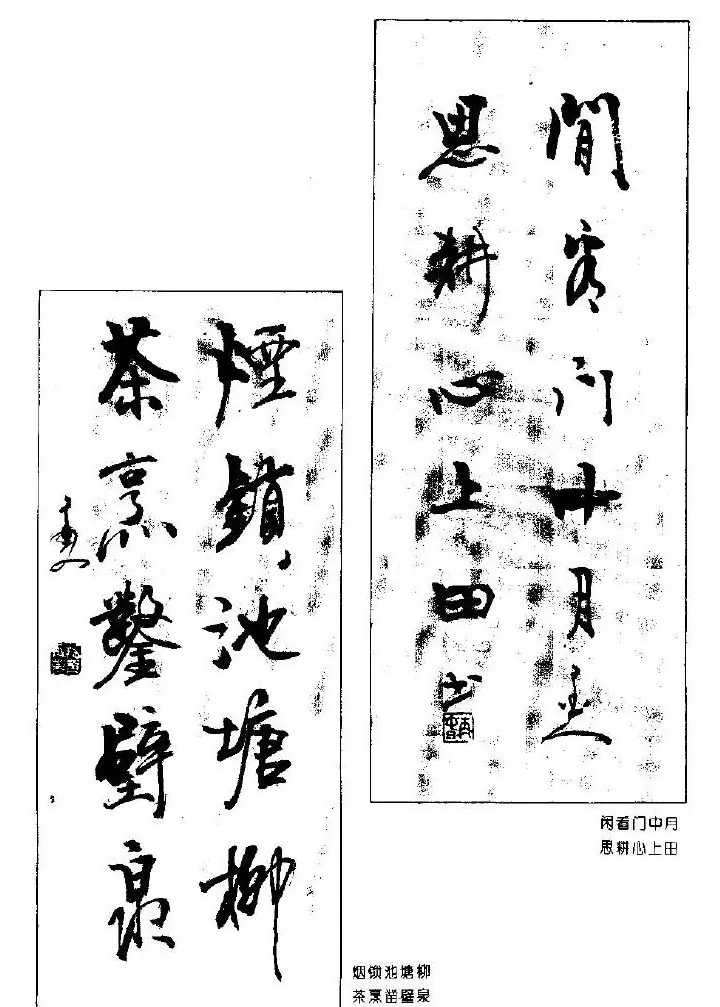 閒看門中月
思耕心上田书
闲看门中月
思耕心上田
煙鎖池塘柳
茶烹鑿壁泉
烟锁池塘柳
茶烹凿壁泉